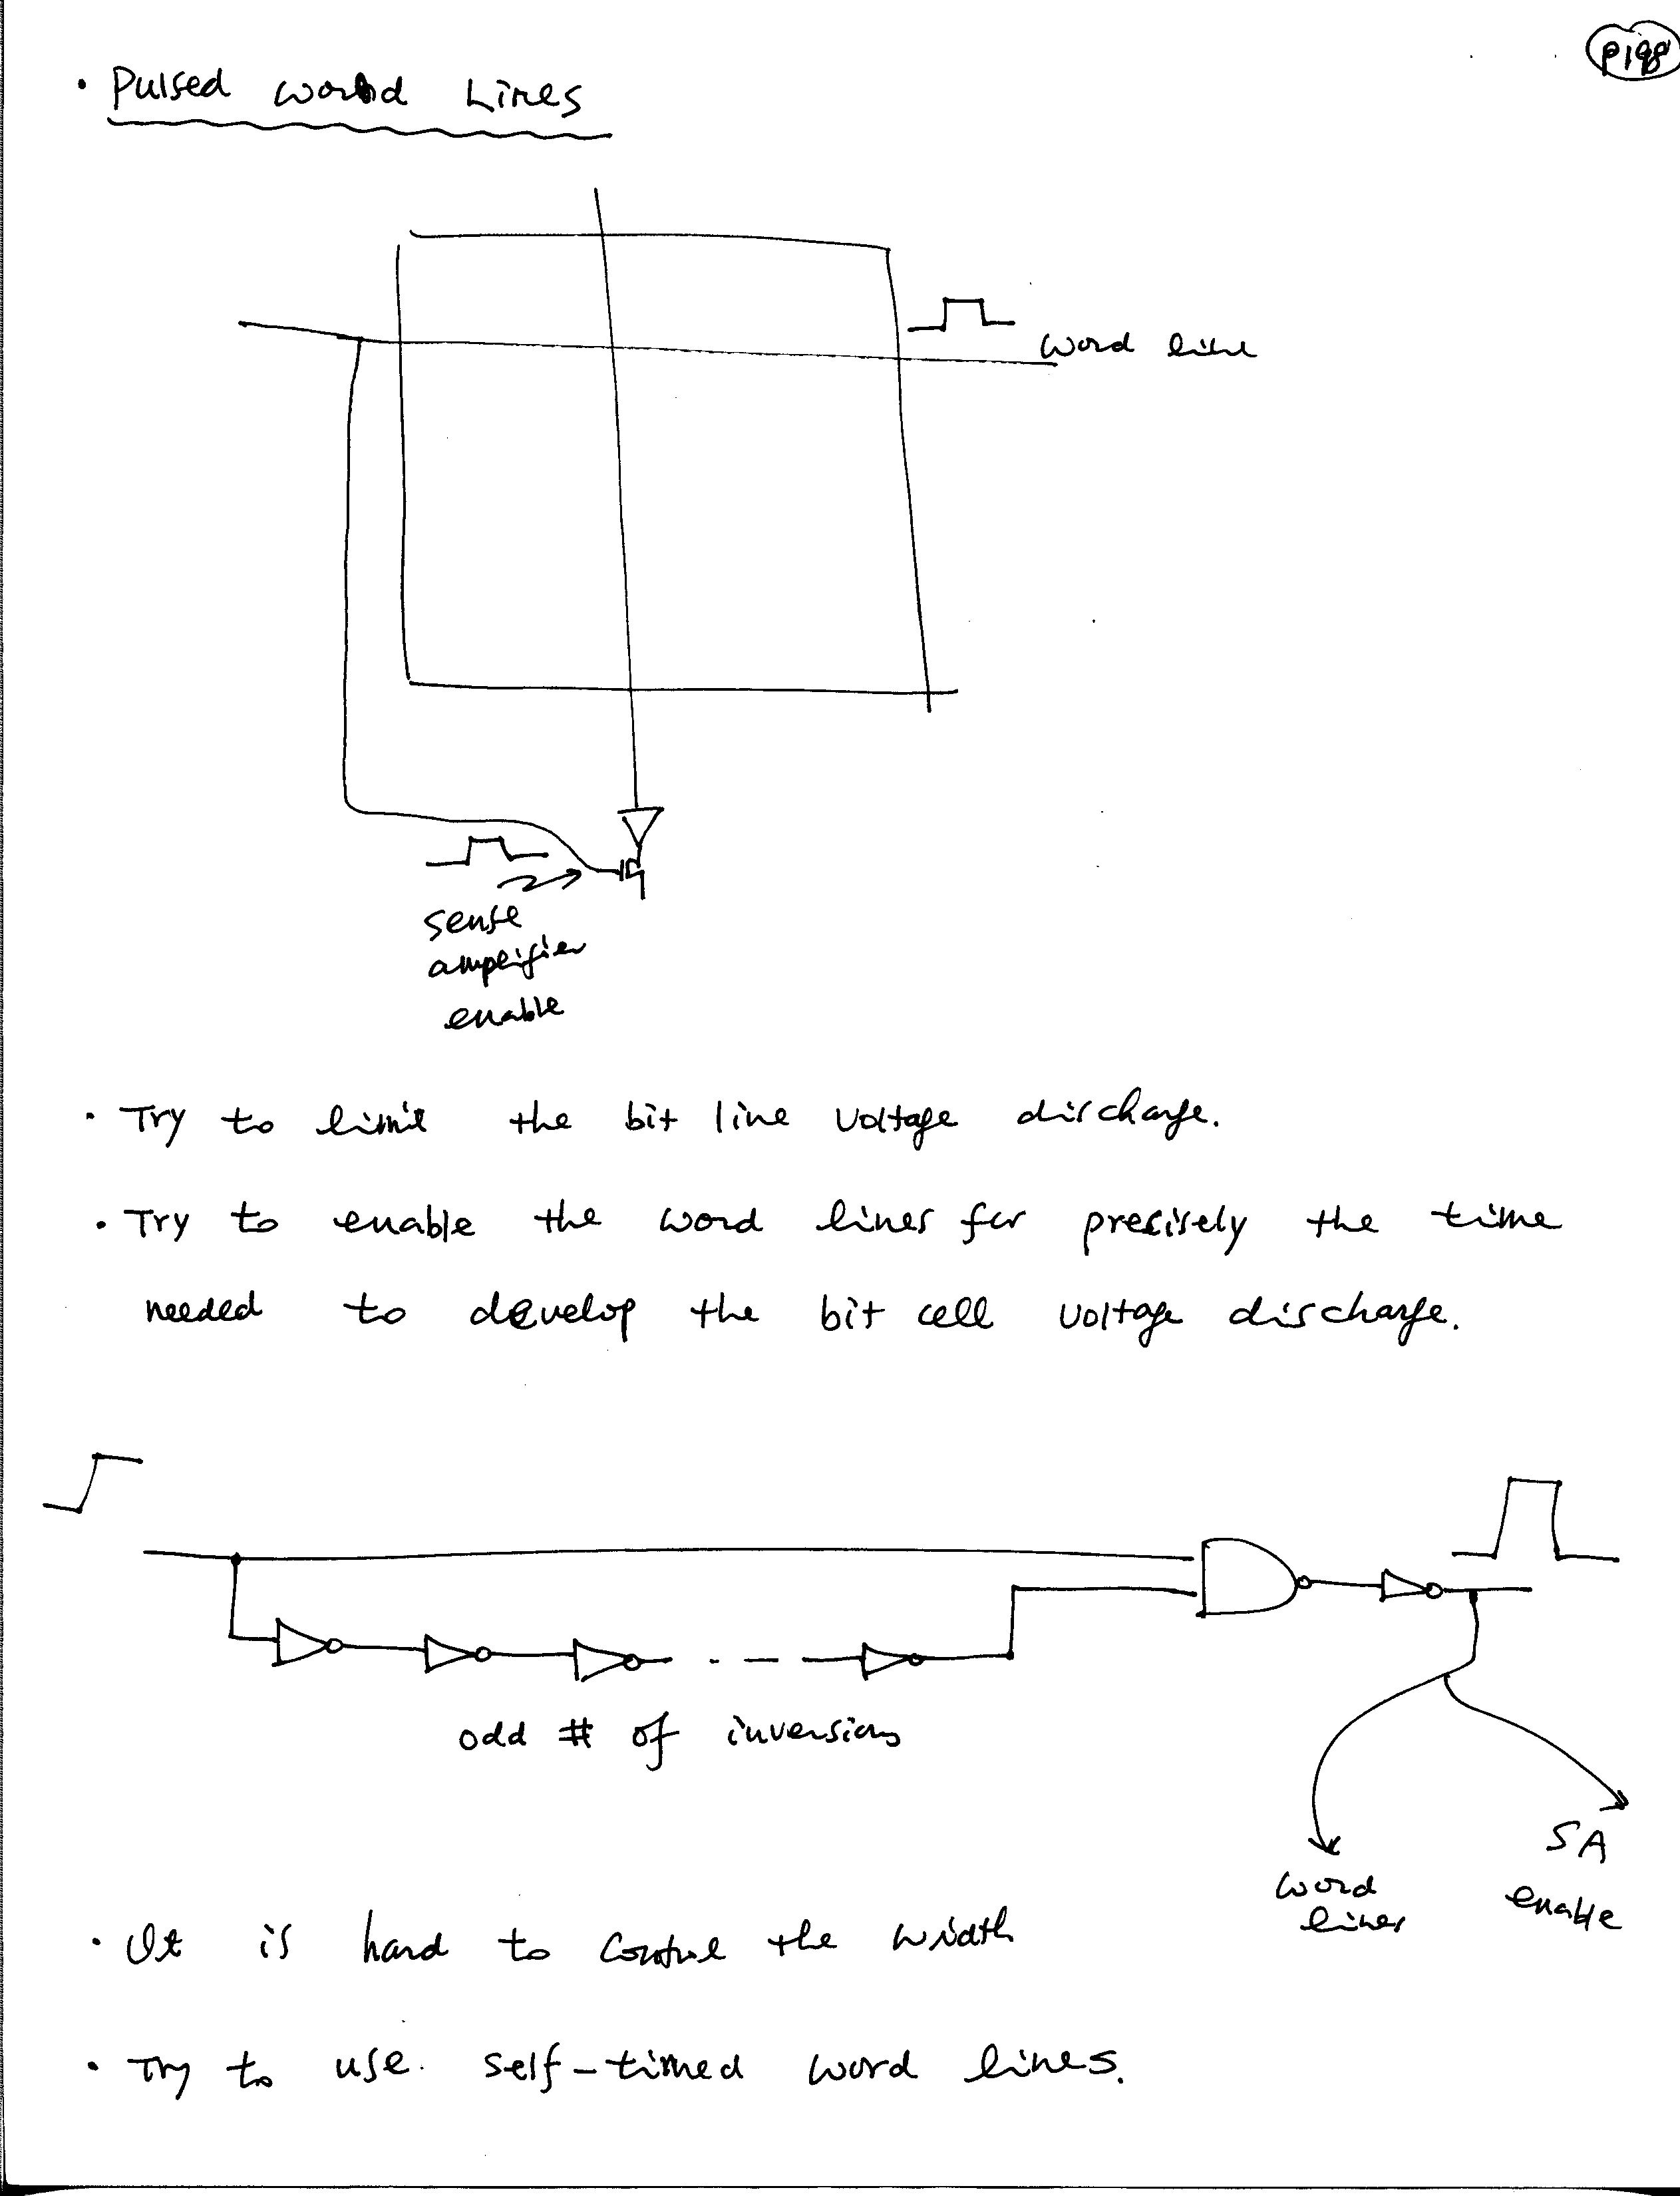 P198
• Pulsed word Lines
word line
sense
amplifier
enable
• Try to limit the bit line voltage discharge.
• Try to enable the word lines for precisely the time
needed to develop the bit cell voltage discharge.
odd # of inversions
SA
enable
word
lines
• It is hard to control the width
• Try to use self-timed word lines.